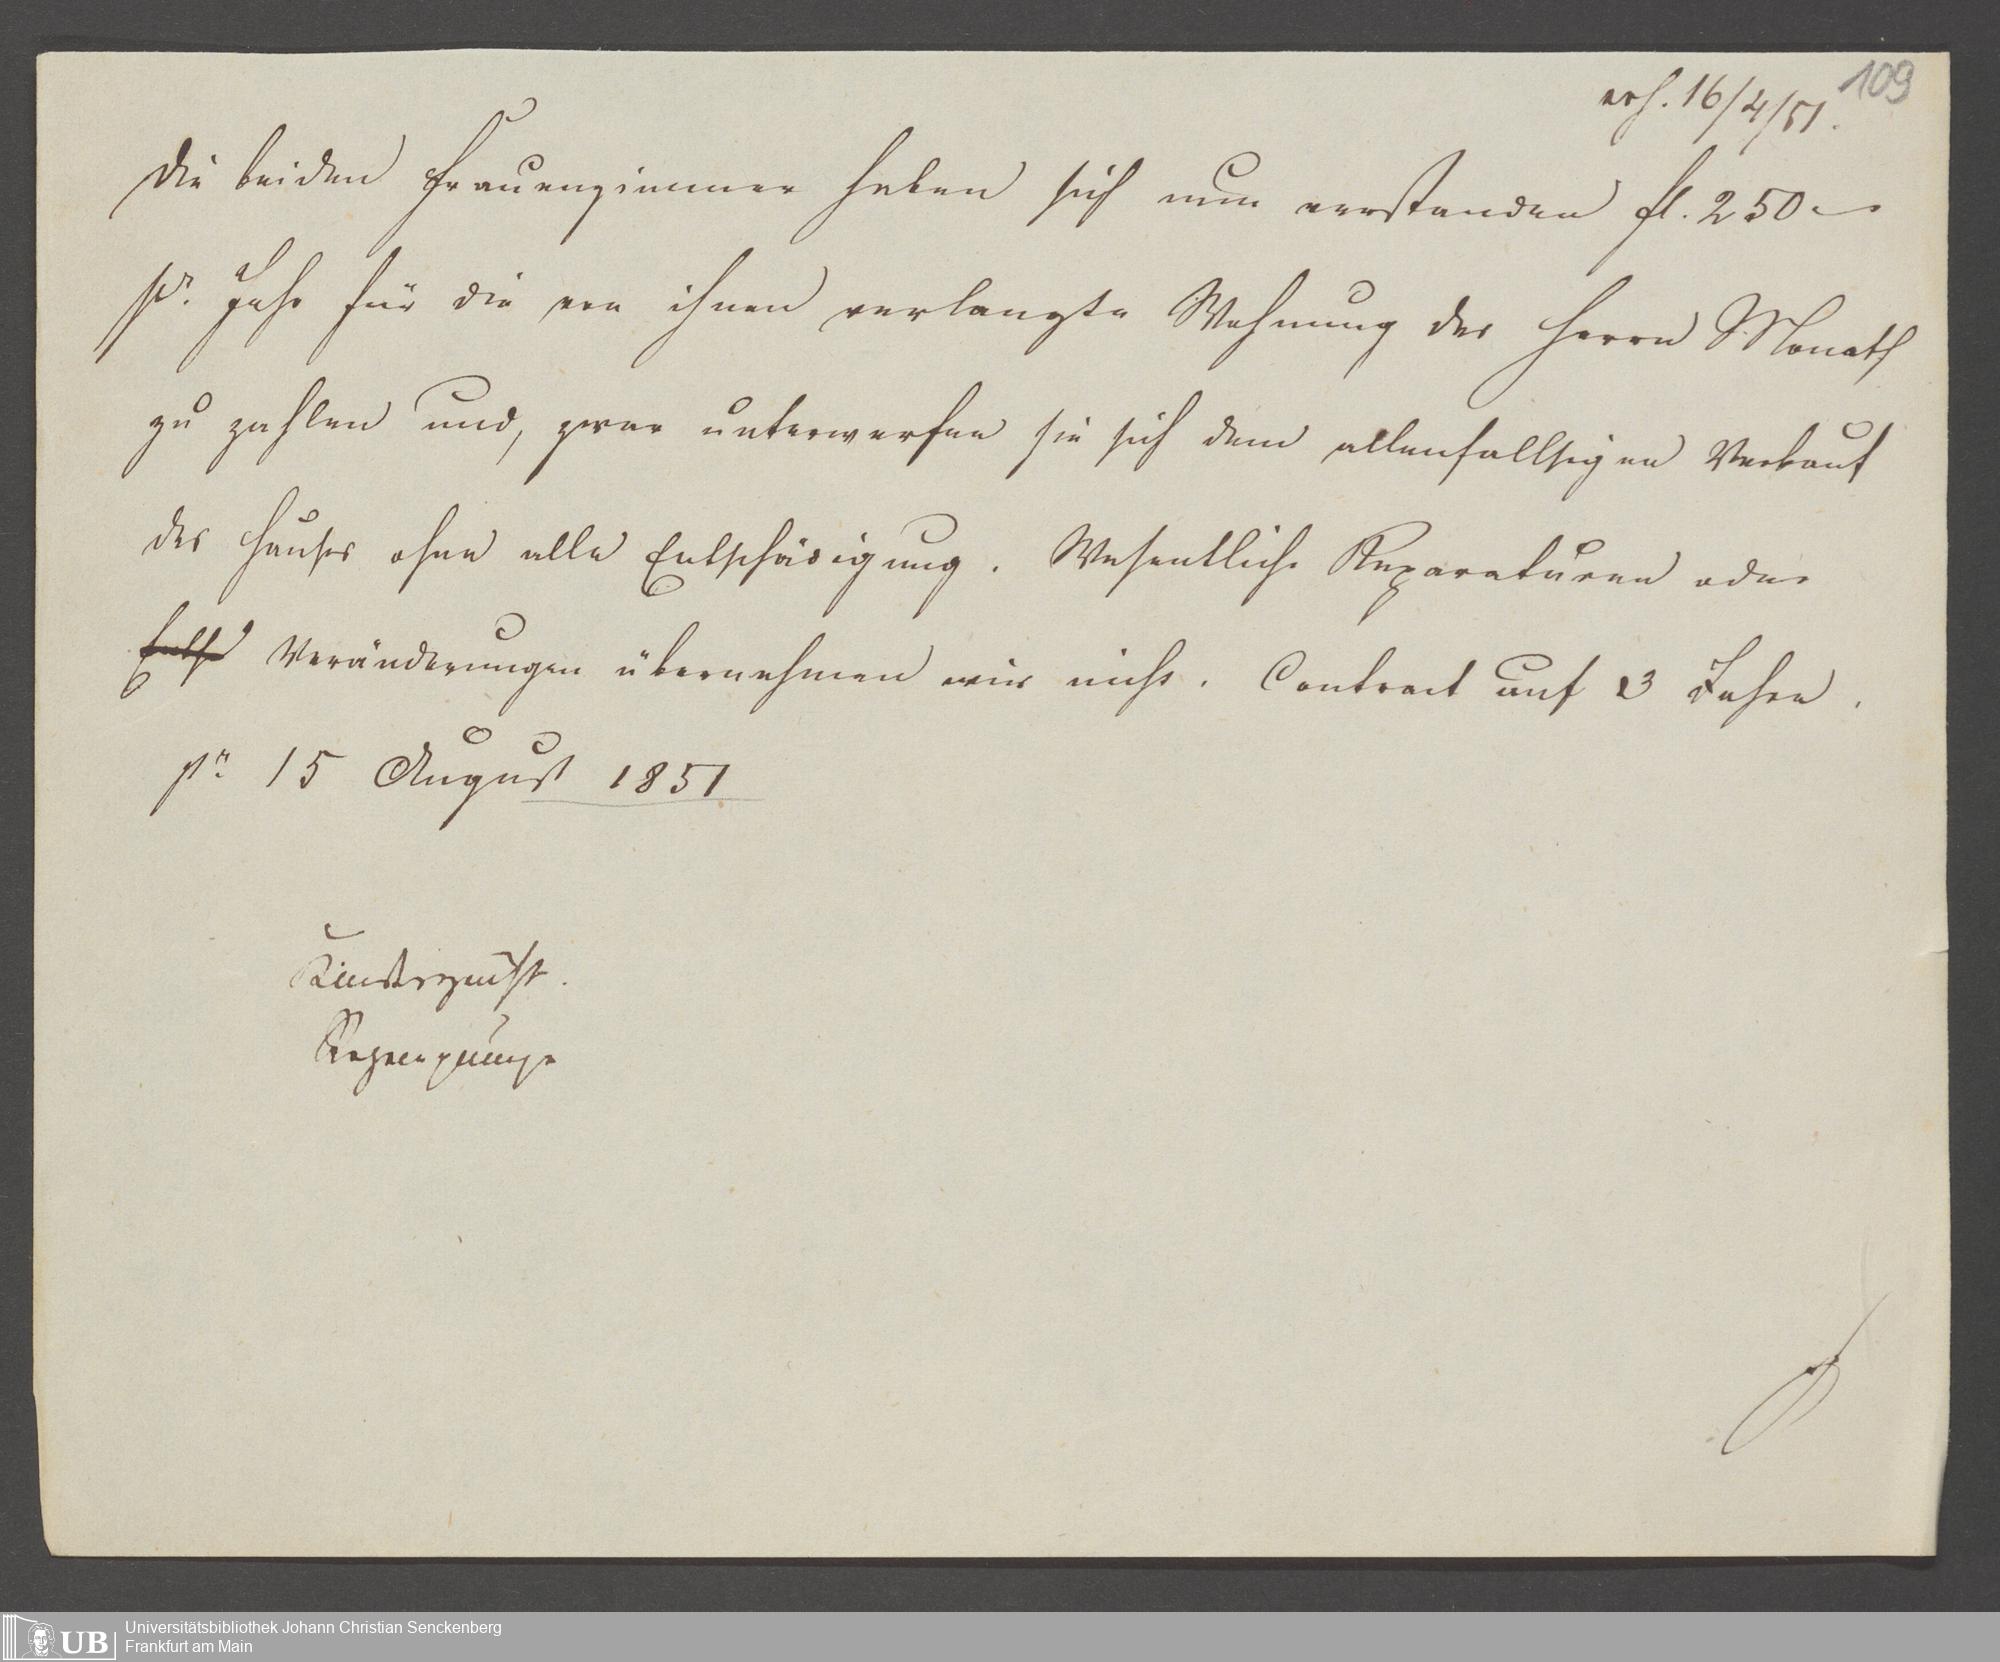 109
erh. 16/4/51.
Die beiden Frauenzimmer haben sich nun verstanden fl. 250 —
pr. Jahr für die von ihnen verlangte Wohnung des Herrn Monath
zu zahlen und, zwar unterwerfen sie sich dem allenfallsigen Verkauf
des Hauses ohne alle Entschädigung. Wesentliche Reparaturen oder
Entsch Veränderungen übernehmen wir nicht. Contract auf 3 Jahre.
pr 15 August 1851
Regenpumpe
UB Universitätsbibliothek Johann Christian Senckenberg
Frankfurt am Main